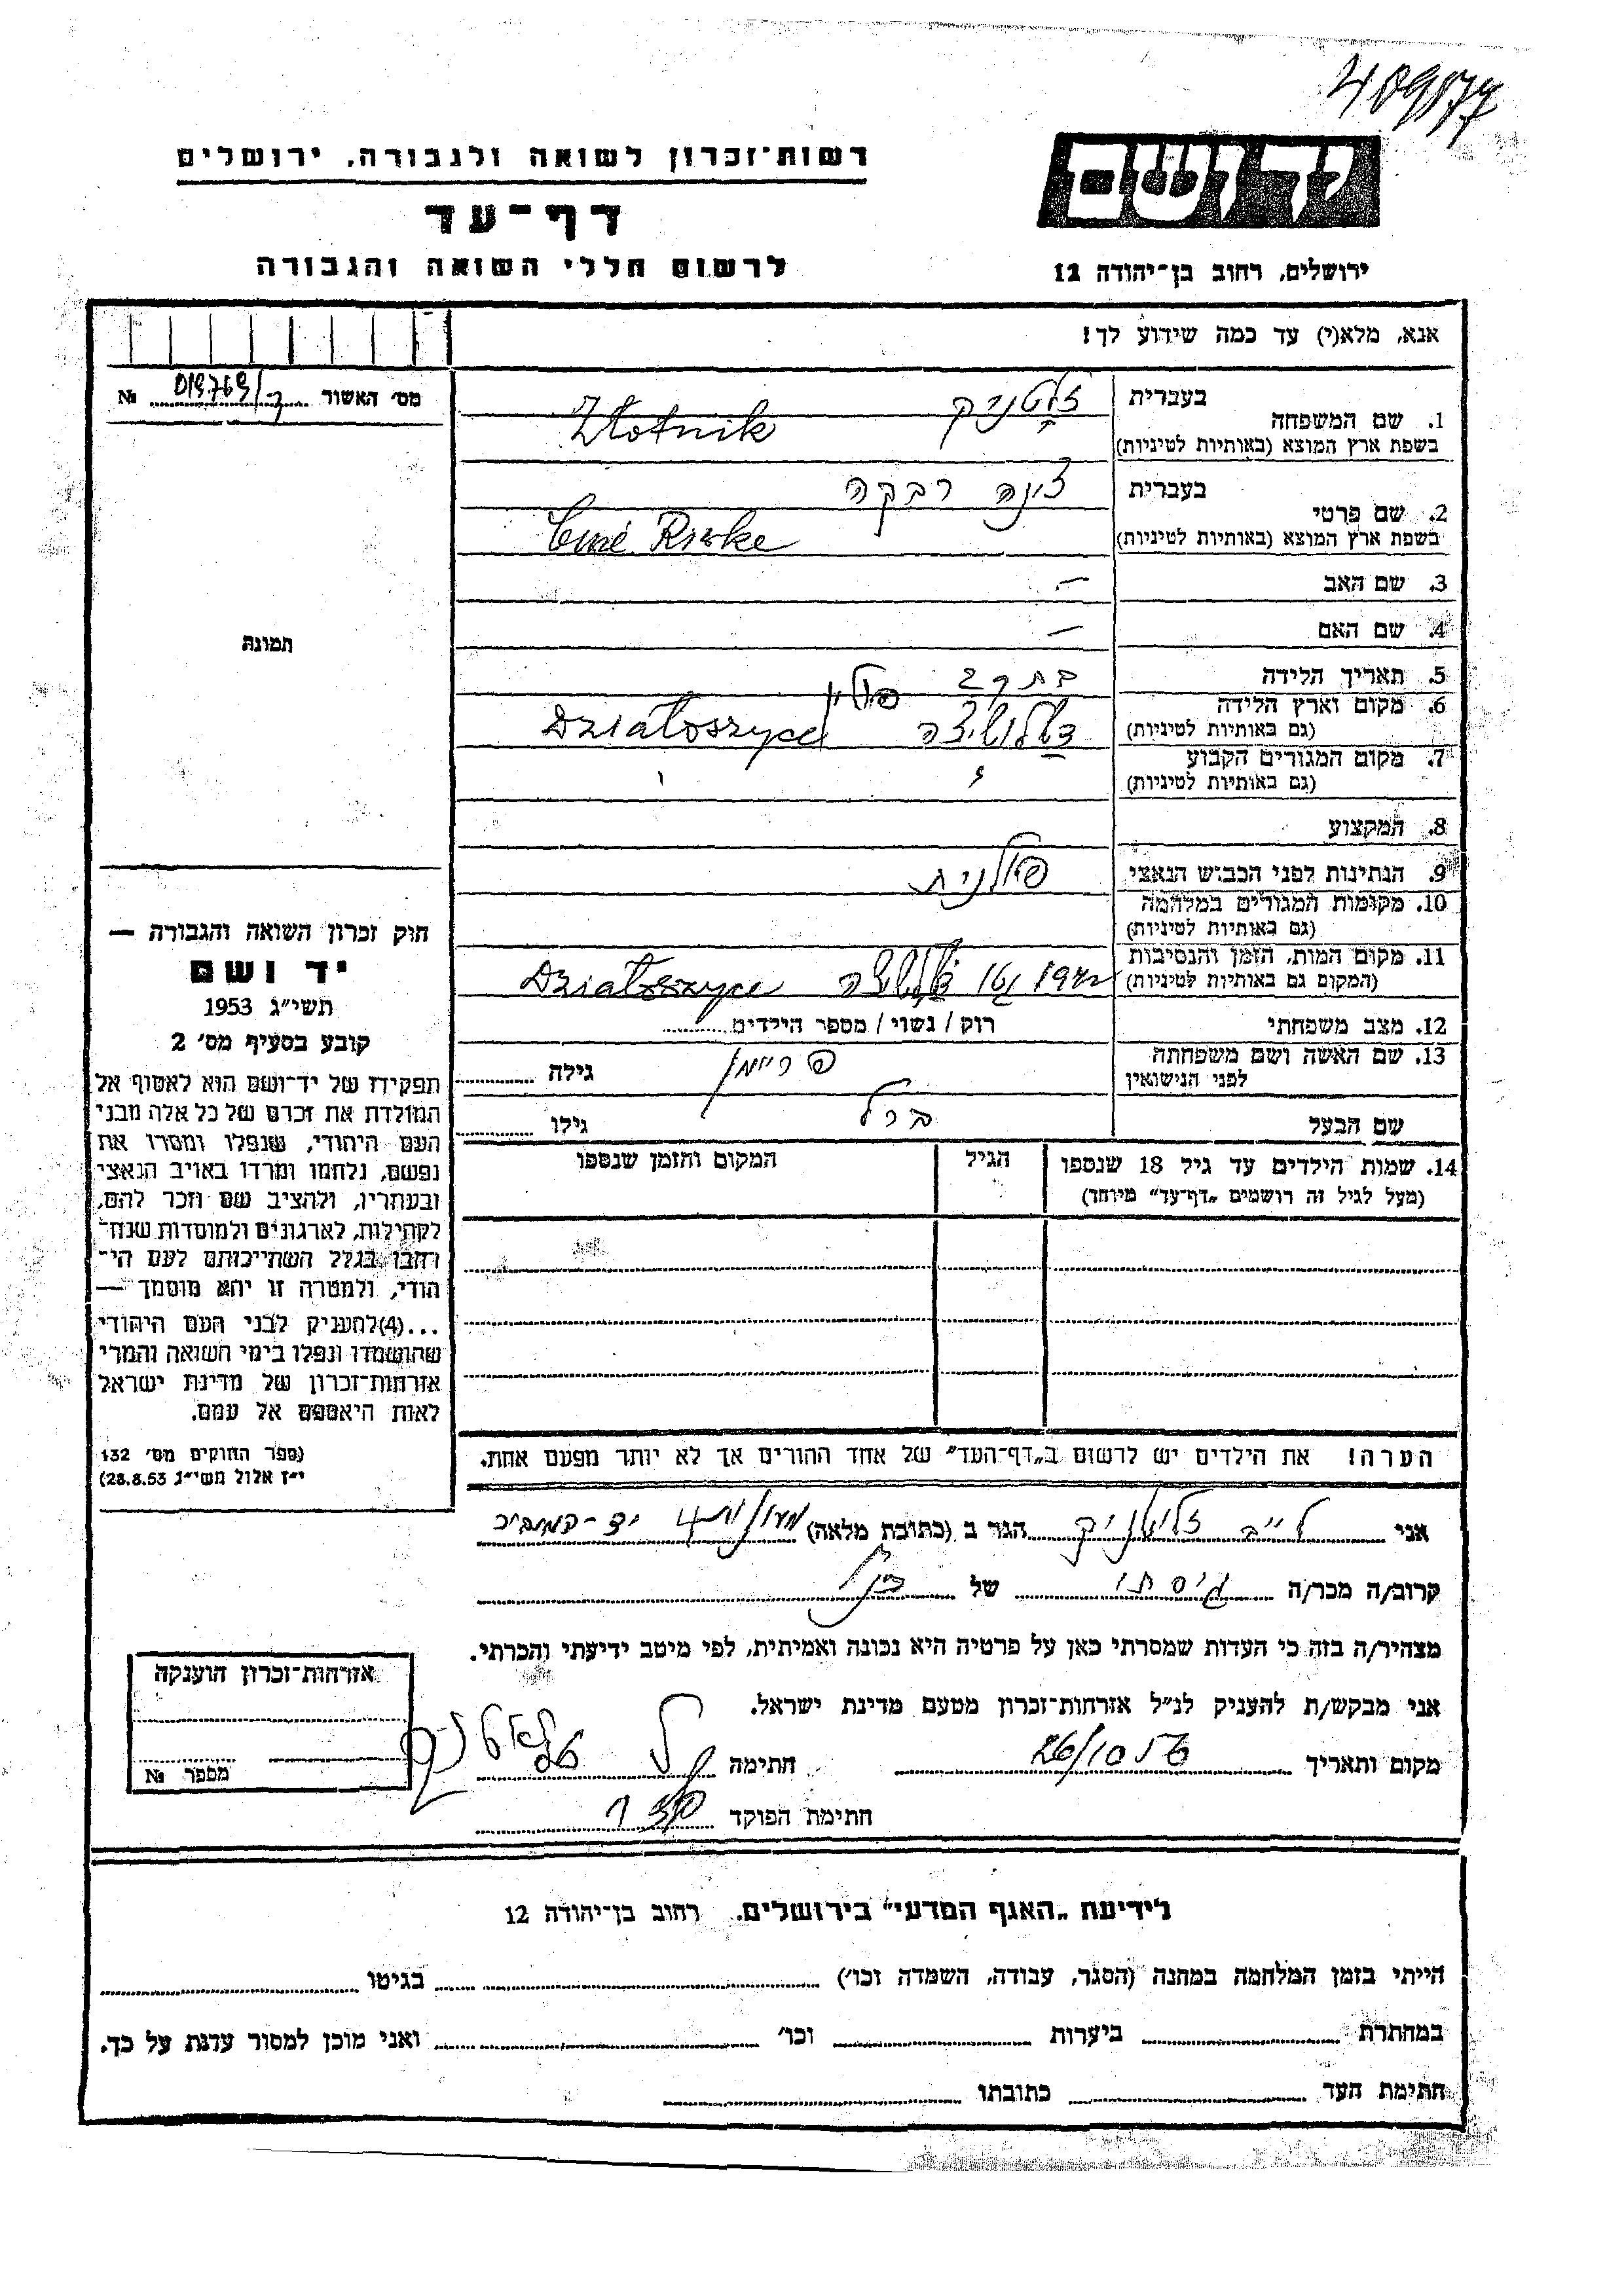 רשות־זכרון לשואה ולגבורה, ירושלים
דף־עד
לרשום חללי השואה והגבורה
יד ושם
ירושלים, רחוב בן־יהודה 12
אנא, מלא(י) עד כמה שידוע לך!
מס׳ האשור 019769/ № 
בעברית זלוטניק
1. שם המשפחה
בשפת ארץ המוצא (באותיות לטיניות) Złotnik
בעברית רבקה
2. שם פרטי
בשפת ארץ המוצא (באותיות לטיניות) Riwke
3. שם האב —
4. שם האם —
5. תאריך הלידה
6. מקום וארץ הלידה פולין
(גם באותיות לטיניות) Działoszyce
7. מקום המגורים הקבוע
(גם באותיות לטיניות)
8. המקצוע
9. הנתינות לפני הכבוש הנאצי פולנית
10. מקומות המגורים במלחמה
(גם באותיות לטיניות)
11. מקום המות, הזמן והנסיבות
(המקום גם באותיות לטיניות) 1942 Działoszyce
12. מצב משפחתי רוק / נשוי / מספר הילדים
13. שם האשה ושם משפחתה
לפני הנישואין פריימן גילה
שם הבעל ברל גילו
14. שמות הילדים עד גיל 18 שנספו הגיל המקום והזמן שנספו
(מעל לגיל זה רושמים „דף־עד” מיוחד)
הערה! את הילדים יש לרשום ב„דף־העד” של אחד ההורים אך לא יותר מפעם אחת.
תמונה
חוק זכרון השואה והגבורה —
יד ושם
תשי״ג 1953
קובע בסעיף מס׳ 2
תפקידו של יד־ושם הוא לאסוף אל
המולדת את זכרם של כל אלה מבני
העם היהודי, שנפלו ומסרו את
נפשם, נלחמו ומרדו באויב הנאצי
ובעוזריו, ולהציב שם וזכר להם,
לקהילות, לארגונים ולמוסדות שנח־
רבו בגלל השתייכותם לעם הי־
הודי, ולמטרה זו יהא מוסמך —
...(4)להעניק לבני העם היהודי
שהושמדו ונפלו בימי השואה והמרי
אזרחות־זכרון של מדינת ישראל
לאות היאספם אל עמם.
(ספר החוקים מס׳ 132
י״ז אלול תשי״ג 28.8.53)
אני לייב זלוטניק הגר ב (כתובת מלאה)
קרוב/ה מכר/ה גיסתו של
מצהיר/ה בזה כי העדות שמסרתי כאן על פרטיה היא נכונה ואמיתית, לפי מיטב ידיעתי והכרתי.
אני מבקש/ת להעניק לנ״ל אזרחות־זכרון מטעם מדינת ישראל.
מקום ותאריך 26/10 56 חתימה
חתימת הפוקד
אזרחות־זכרון הוענקה
מספר №
לידיעת „האגף המדעי” בירושלים, רחוב בן־יהודה 12
הייתי בזמן המלחמה במחנה (הסגר, עבודה, השמדה וכו׳) בגיטו
במחתרת ביערות וכו׳ ואני מוכן למסור עדות על כך.
חתימת העד כתובתו